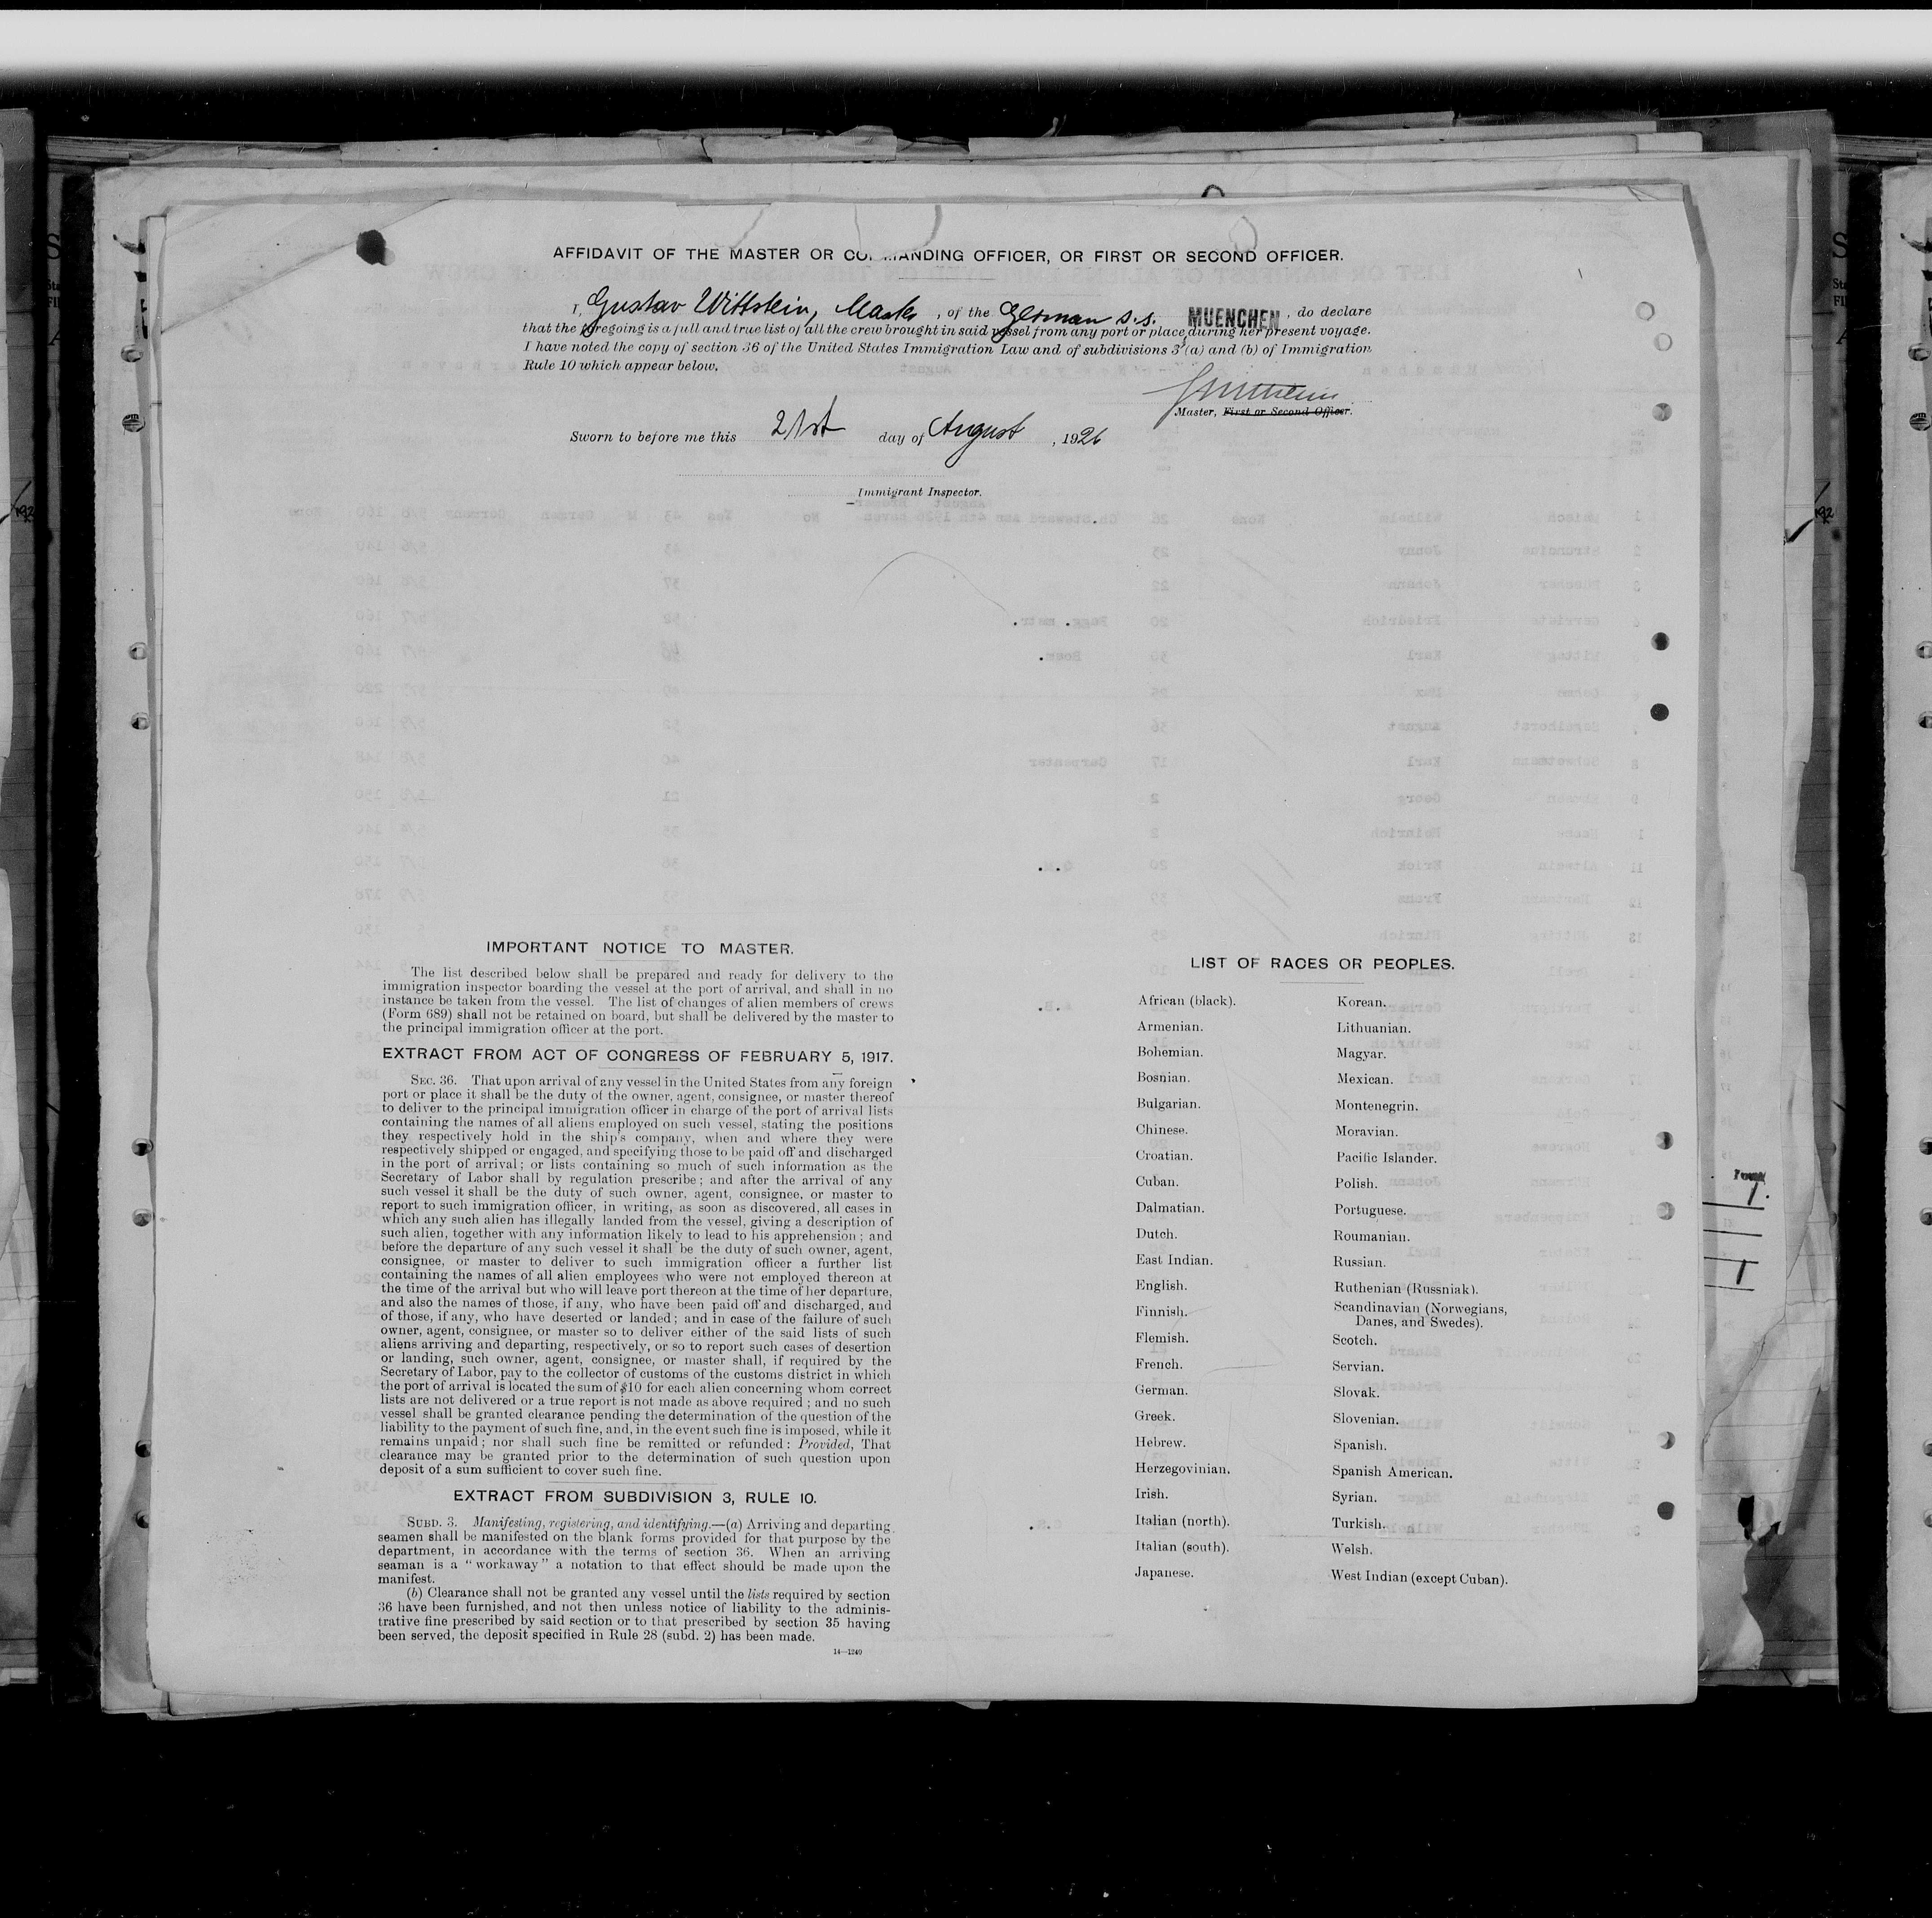 AFFIDAVIT OF THE MASTER OR COMMANDING OFFICER, OR FIRST OR SECOND OFFICER.
I, Gustav Wittstein, Master, of the German s.s. MUENCHEN, do declare
that the foregoing is a full and true list of all the crew brought in said vessel from any port or place during her present voyage.
I have noted the copy of section 36 of the United States Immigration Law and of subdivisions 3 (a) and (b) of Immigration
Rule 10 which appear below.
Master, First or Second Officer.
Sworn to before me this 21st day of August, 1926
Immigrant Inspector.
IMPORTANT NOTICE TO MASTER.
The list described below shall be prepared and ready for delivery to the
immigration inspector boarding the vessel at the port of arrival, and shall in no
instance be taken from the vessel. The list of changes of alien members of crews
(Form 689) shall not be retained on board, but shall be delivered by the master to
the principal immigration officer at the port.
EXTRACT FROM ACT OF CONGRESS OF FEBRUARY 5, 1917.
SEC. 36. That upon arrival of any vessel in the United States from any foreign
port or place it shall be the duty of the owner, agent, consignee, or master thereof
to deliver to the principal immigration officer in charge of the port of arrival lists
containing the names of all aliens employed on such vessel, stating the positions
they respectively hold in the ship's company, when and where they were
respectively shipped or engaged, and specifying those to be paid off and discharged
in the port of arrival; or lists containing so much of such information as the
Secretary of Labor shall by regulation prescribe; and after the arrival of any
such vessel it shall be the duty of such owner, agent, consignee, or master to
report to such immigration officer, in writing, as soon as discovered, all cases in
which any such alien has illegally landed from the vessel, giving a description of
such alien, together with any information likely to lead to his apprehension; and
before the departure of any such vessel it shall be the duty of such owner, agent,
consignee, or master to deliver to such immigration officer a further list
containing the names of all alien employees who were not employed thereon at
the time of the arrival but who will leave port thereon at the time of her departure,
and also the names of those, if any, who have been paid off and discharged, and
of those, if any, who have deserted or landed; and in case of the failure of such
owner, agent, consignee, or master so to deliver either of the said lists of such
aliens arriving and departing, respectively, or so to report such cases of desertion
or landing, such owner, agent, consignee, or master shall, if required by the
Secretary of Labor, pay to the collector of customs of the customs district in which
the port of arrival is located the sum of $10 for each alien concerning whom correct
lists are not delivered or a true report is not made as above required; and no such
vessel shall be granted clearance pending the determination of the question of the
liability to the payment of such fine, and, in the event such fine is imposed, while it
remains unpaid; nor shall such fine be remitted or refunded: Provided, That
clearance may be granted prior to the determination of such question upon
deposit of a sum sufficient to cover such fine.
EXTRACT FROM SUBDIVISION 3, RULE 10.
SUBD. 3. Manifesting, registering, and identifying.—(a) Arriving and departing
seamen shall be manifested on the blank forms provided for that purpose by the
department, in accordance with the terms of section 36. When an arriving
seaman is a "workaway" a notation to that effect should be made upon the
manifest.
(b) Clearance shall not be granted any vessel until the lists required by section
36 have been furnished, and not then unless notice of liability to the adminis-
trative fine prescribed by said section or to that prescribed by section 35 having
been served, the deposit specified in Rule 28 (subd. 2) has been made.
14—1240
LIST OF RACES OR PEOPLES.
African (black).
Armenian.
Bohemian.
Bosnian.
Bulgarian.
Chinese.
Croatian.
Cuban.
Dalmatian.
Dutch.
East Indian.
English.
Finnish.
Flemish.
French.
German.
Greek.
Hebrew.
Herzegovinian.
Irish.
Italian (north).
Italian (south).
Japanese.
Korean.
Lithuanian.
Magyar.
Mexican.
Montenegrin.
Moravian.
Pacific Islander.
Polish.
Portuguese.
Roumanian.
Russian.
Ruthenian (Russniak).
Scandinavian (Norwegians,
Danes, and Swedes).
Scotch.
Servian.
Slovak.
Slovenian.
Spanish.
Spanish American.
Syrian.
Turkish.
Welsh.
West Indian (except Cuban).